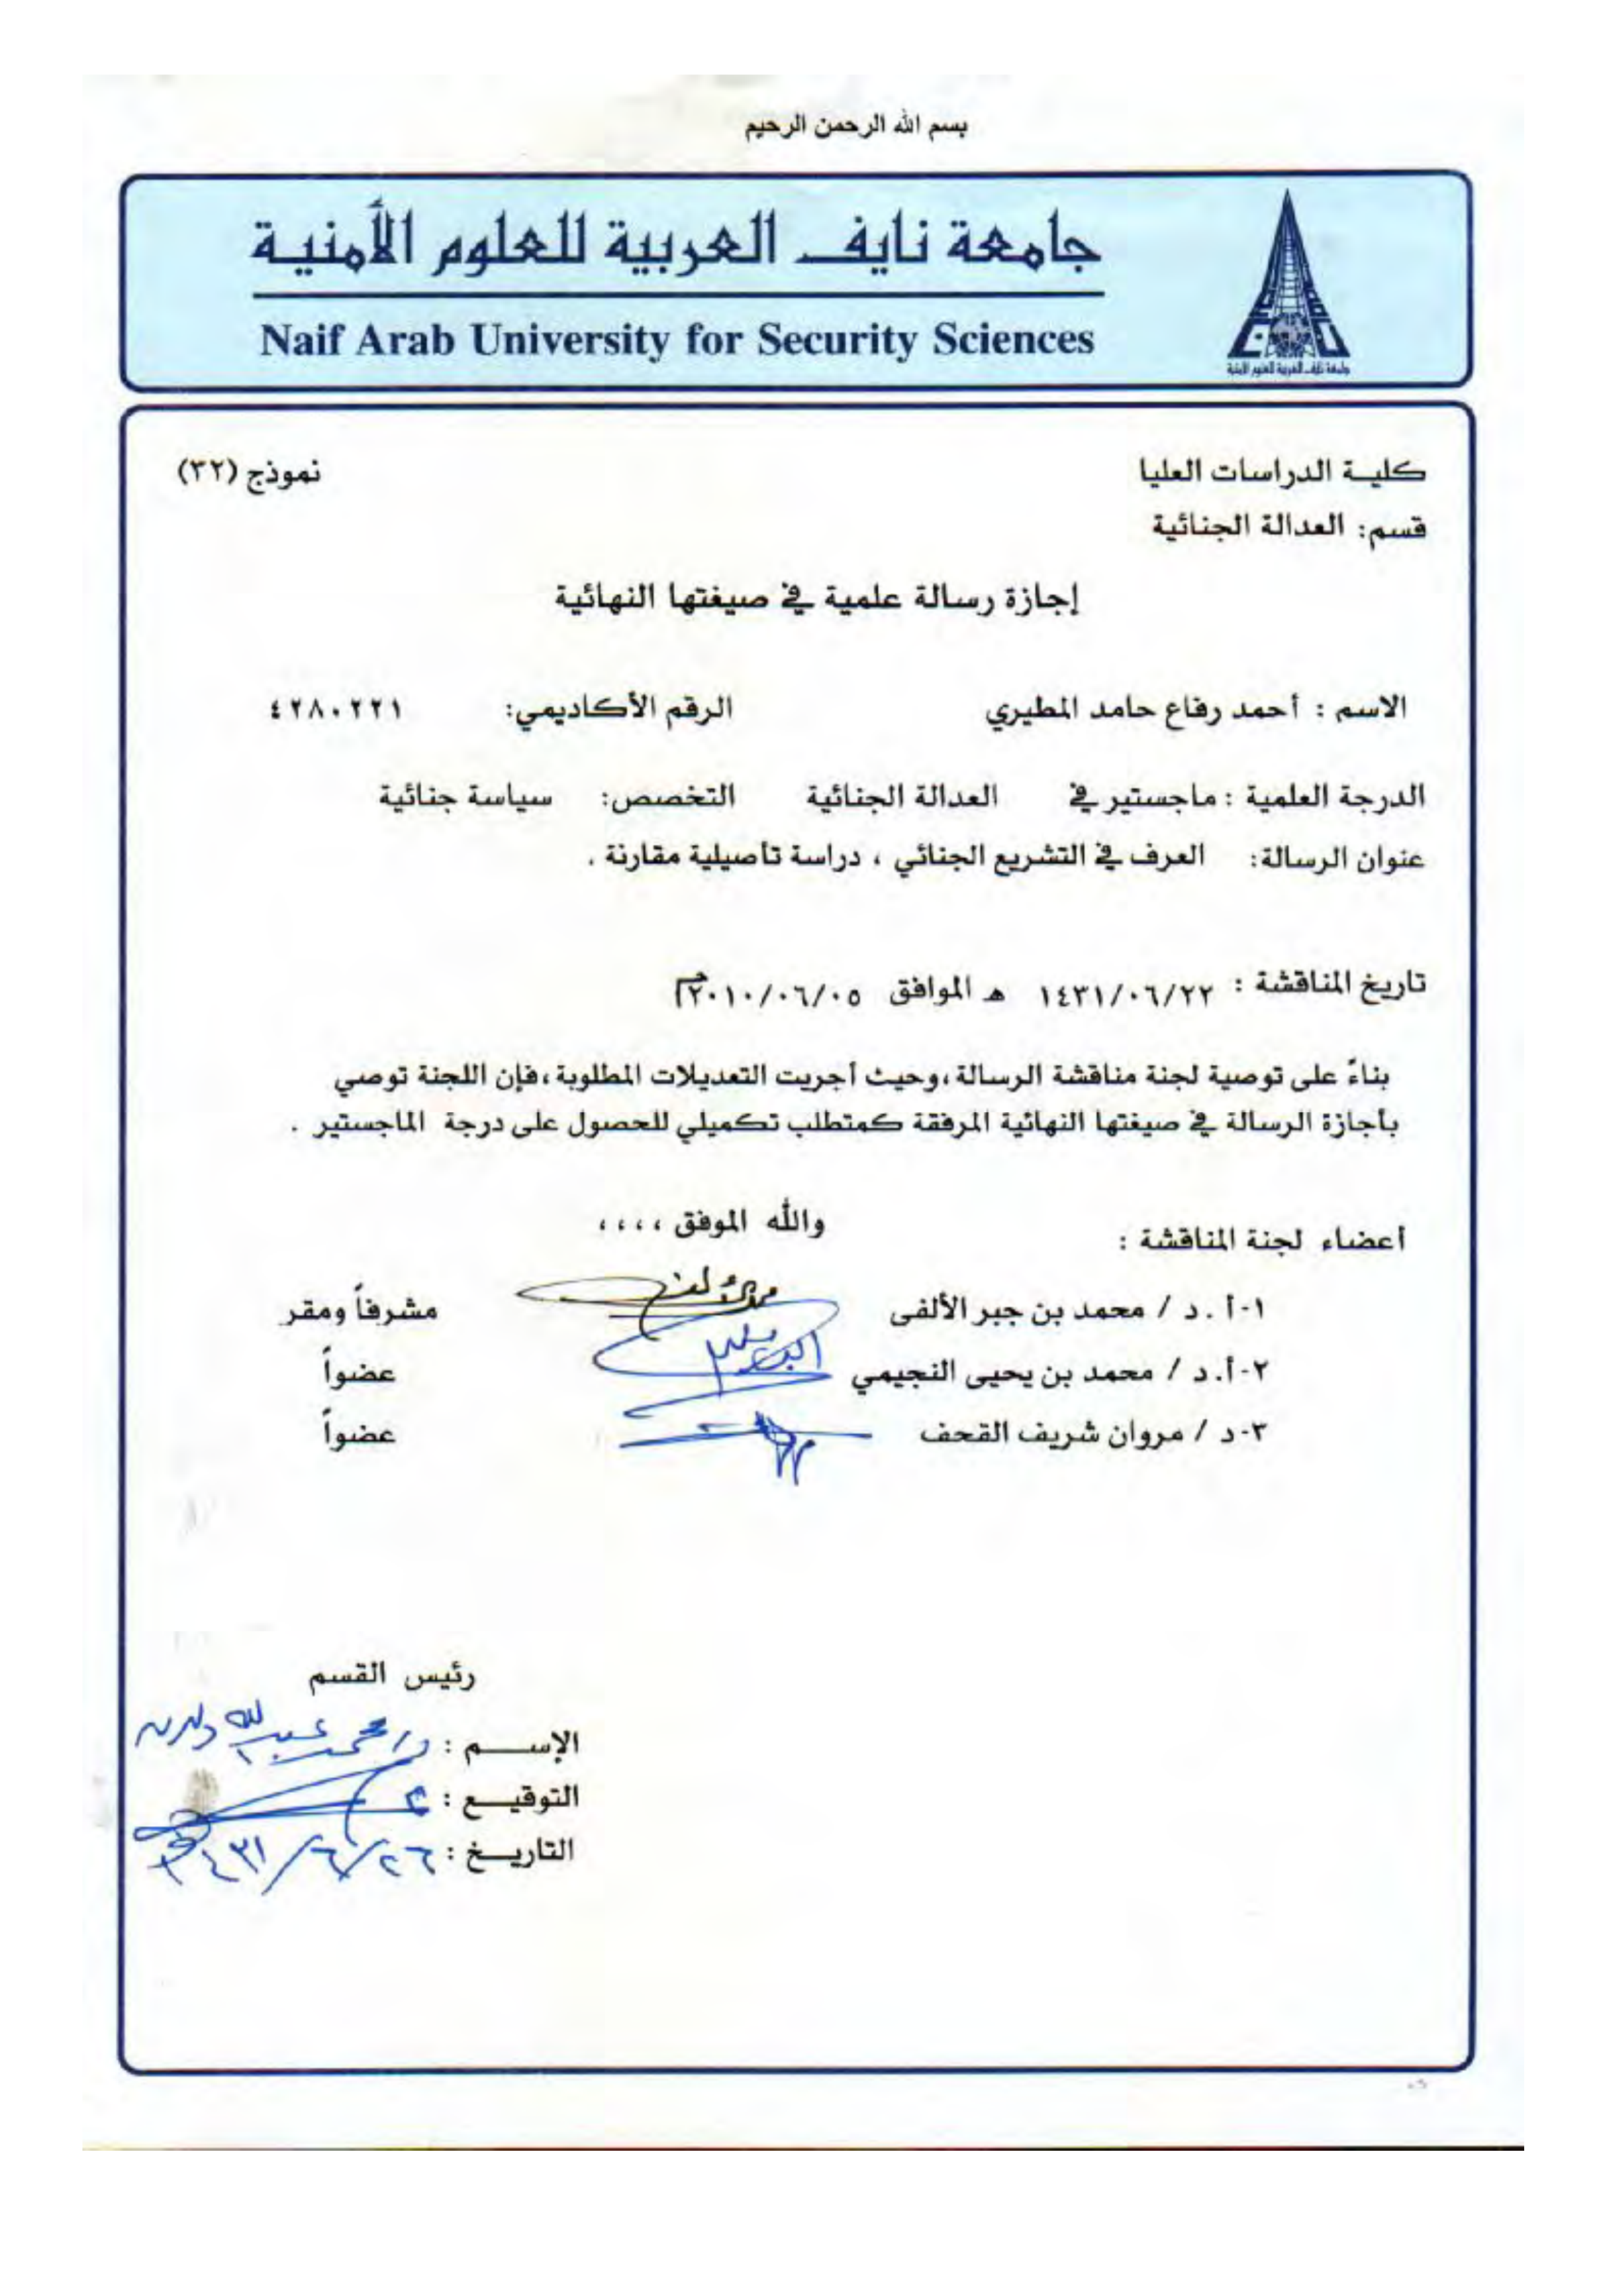 بسم الله الرحمن الرحيم
جامعة نايف العربية للعلوم الأمنية
Naif Arab University for Security Sciences
جامعة نايف العربية للعلوم الأمنية
كلية الدراسات العليا نموذج (٣٢)
قسم: العدالة الجنائية
إجازة رسالة علمية في صيغتها النهائية
الاسم : أحمد رفاع حامد المطيري الرقم الأكاديمي: ٤٢٨٠٢٢١
الدرجة العلمية : ماجستير في العدالة الجنائية التخصص: سياسة جنائية
عنوان الرسالة: العرف في التشريع الجنائي ، دراسة تأصيلية مقارنة .
تاريخ المناقشة : ١٤٣١/٠٦/٢٢ هـ الموافق ٢٠١٠/٠٦/٠٥م
بناءً على توصية لجنة مناقشة الرسالة ،وحيث أجريت التعديلات المطلوبة ،فإن اللجنة توصي
بأجازة الرسالة في صيغتها النهائية المرفقة كمتطلب تكميلي للحصول على درجة الماجستير .
والله الموفق ، ، ، ،
أعضاء لجنة المناقشة :
١-أ .د / محمد بن جبر الألفى مشرفاً ومقر
٢-أ.د / محمد بن يحيى النجيمي عضواً
٣-د / مروان شريف القحف عضواً
رئيس القسم
الإســـم : د/ محمد عبدالله
التوقيـع :
التاريـخ : ٢٦/٦/١٤٣١